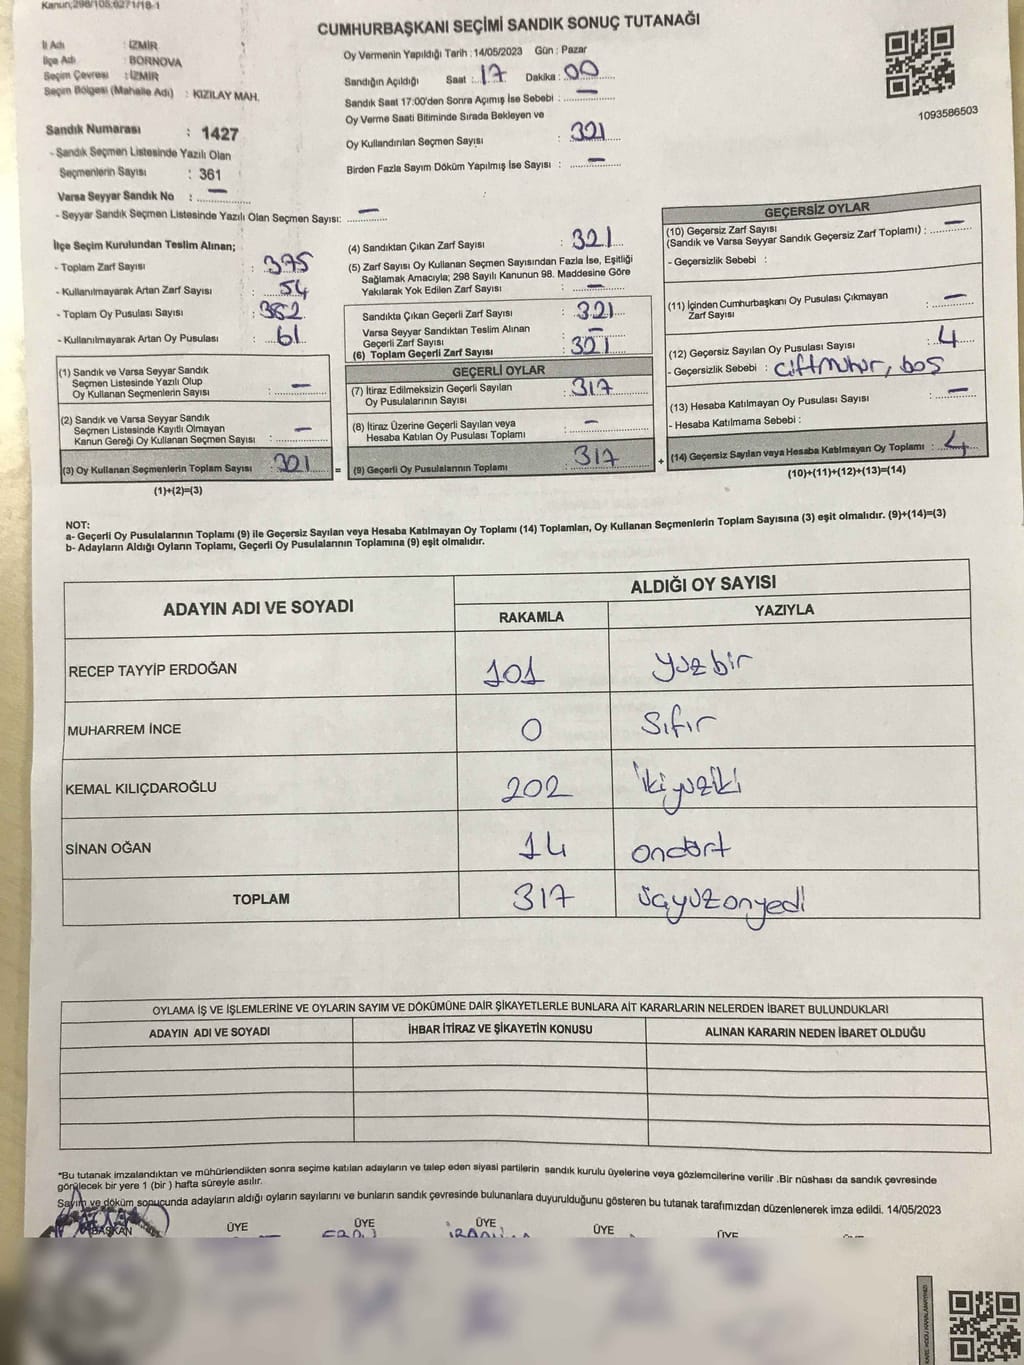 Kanun;298/105;6271/18-1
CUMHURBAŞKANI SEÇİMİ SANDIK SONUÇ TUTANAĞI
İl Adı : İZMİR
İlçe Adı : BORNOVA
Seçim Çevresi : İZMİR
Seçim Bölgesi (Mahalle Adı) : KIZILAY MAH.
Oy Vermenin Yapıldığı Tarih : 14/05/2023 Gün : Pazar
Sandığın Açıldığı Saat : 17 Dakika : 00
Sandık Saat 17:00'den Sonra Açımış İse Sebebi : —
Oy Verme Saati Bitiminde Sırada Bekleyen ve
Oy Kullandırılan Seçmen Sayısı : 321
Birden Fazla Sayım Döküm Yapılmış İse Sayısı : —
1093586503
Sandık Numarası : 1427
- Sandık Seçmen Listesinde Yazılı Olan
Seçmenlerin Sayısı : 361
Varsa Seyyar Sandık No : —
- Seyyar Sandık Seçmen Listesinde Yazılı Olan Seçmen Sayısı: —
İlçe Seçim Kurulundan Teslim Alınan;
- Toplam Zarf Sayısı : 375
- Kullanılmayarak Artan Zarf Sayısı : 54
- Toplam Oy Pusulası Sayısı : 382
- Kullanılmayarak Artan Oy Pusulası : 61
(1) Sandık ve Varsa Seyyar Sandık
Seçmen Listesinde Yazılı Olup
Oy Kullanan Seçmenlerin Sayısı : —
(2) Sandık ve Varsa Seyyar Sandık
Seçmen Listesinde Kayıtlı Olmayan
Kanun Gereği Oy Kullanan Seçmen Sayısı : —
(3) Oy Kullanan Seçmenlerin Toplam Sayısı : 321 =
(1)+(2)=(3)
(4) Sandıktan Çıkan Zarf Sayısı : 321
(5) Zarf Sayısı Oy Kullanan Seçmen Sayısından Fazla İse, Eşitliği
Sağlamak Amacıyla; 298 Sayılı Kanunun 98. Maddesine Göre
Yakılarak Yok Edilen Zarf Sayısı : —
Sandıkta Çıkan Geçerli Zarf Sayısı : 321
Varsa Seyyar Sandıktan Teslim Alınan
Geçerli Zarf Sayısı : —
(6) Toplam Geçerli Zarf Sayısı : 321
GEÇERLİ OYLAR
(7) İtiraz Edilmeksizin Geçerli Sayılan
Oy Pusulalarının Sayısı : 317
(8) İtiraz Üzerine Geçerli Sayılan veya
Hesaba Katılan Oy Pusulası Toplamı : —
(9) Geçerli Oy Pusulalarının Toplamı : 317 +
GEÇERSİZ OYLAR
(10) Geçersiz Zarf Sayısı
(Sandık ve Varsa Seyyar Sandık Geçersiz Zarf Toplamı) : —
- Geçersizlik Sebebi :
(11) İçinden Cumhurbaşkanı Oy Pusulası Çıkmayan
Zarf Sayısı : —
(12) Geçersiz Sayılan Oy Pusulası Sayısı : 4
- Geçersizlik Sebebi : çiftmühür, boş
(13) Hesaba Katılmayan Oy Pusulası Sayısı : —
- Hesaba Katılmama Sebebi :
(14) Geçersiz Sayılan veya Hesaba Katılmayan Oy Toplamı : 4
(10)+(11)+(12)+(13)=(14)
NOT:
a- Geçerli Oy Pusulalarının Toplamı (9) ile Geçersiz Sayılan veya Hesaba Katılmayan Oy Toplamı (14) Toplamları, Oy Kullanan Seçmenlerin Toplam Sayısına (3) eşit olmalıdır. (9)+(14)=(3)
b- Adayların Aldığı Oyların Toplamı, Geçerli Oy Pusulalarının Toplamına (9) eşit olmalıdır.
ADAYIN ADI VE SOYADI
ALDIĞI OY SAYISI
RAKAMLA YAZIYLA
RECEP TAYYİP ERDOĞAN 101 yüzbir
MUHARREM İNCE 0 Sıfır
KEMAL KILIÇDAROĞLU 202 ikiyüziki
SİNAN OĞAN 14 ondört
TOPLAM 317 üçyüzonyedi
OYLAMA İŞ VE İŞLEMLERİNE VE OYLARIN SAYIM VE DÖKÜMÜNE DAİR ŞİKAYETLERLE BUNLARA AİT KARARLARIN NELERDEN İBARET BULUNDUKLARI
ADAYIN ADI VE SOYADI İHBAR İTİRAZ VE ŞİKAYETİN KONUSU ALINAN KARARIN NEDEN İBARET OLDUĞU
*Bu tutanak imzalandıktan ve mühürlendikten sonra seçime katılan adayların ve talep eden siyasi partilerin sandık kurulu üyelerine veya gözlemcilerine verilir .Bir nüshası da sandık çevresinde
görülecek bir yere 1 (bir ) hafta süreyle asılır.
Sayım ve döküm sonucunda adayların aldığı oyların sayılarını ve bunların sandık çevresinde bulunanlara duyurulduğunu gösteren bu tutanak tarafımızdan düzenlenerek imza edildi. 14/05/2023
BAŞKAN ÜYE ÜYE ÜYE ÜYE ÜYE